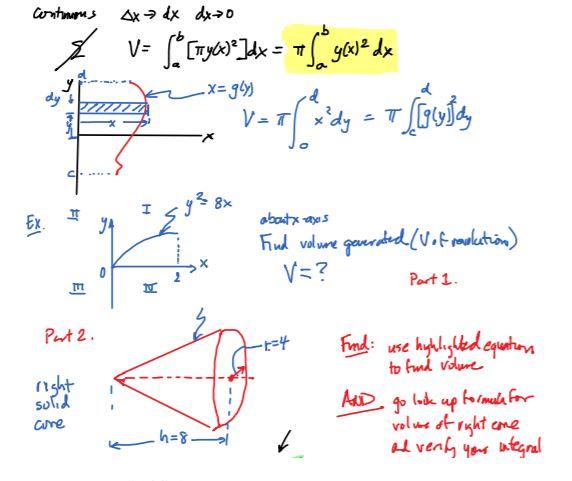 Continuous Δx → dx dx→0
Σ V = ∫_a^b [πy(x)²]dx = π∫_a^b y(x)² dx
y d
dy x = g(y)
x
x
c
V = π∫_0^d x² dy = π∫_c^d [g(y)]² dy
Ex. II y I y² = 8x
0 2 x
III IV
about x-axis
Find volume generated (V of revolution)
V = ?
Part 1.
Part 2.
r=4
right
solid
cone
h=8
Find: use highlighted equation
to find volume
AND go look up formula for
volume of right cone
and verify your integral